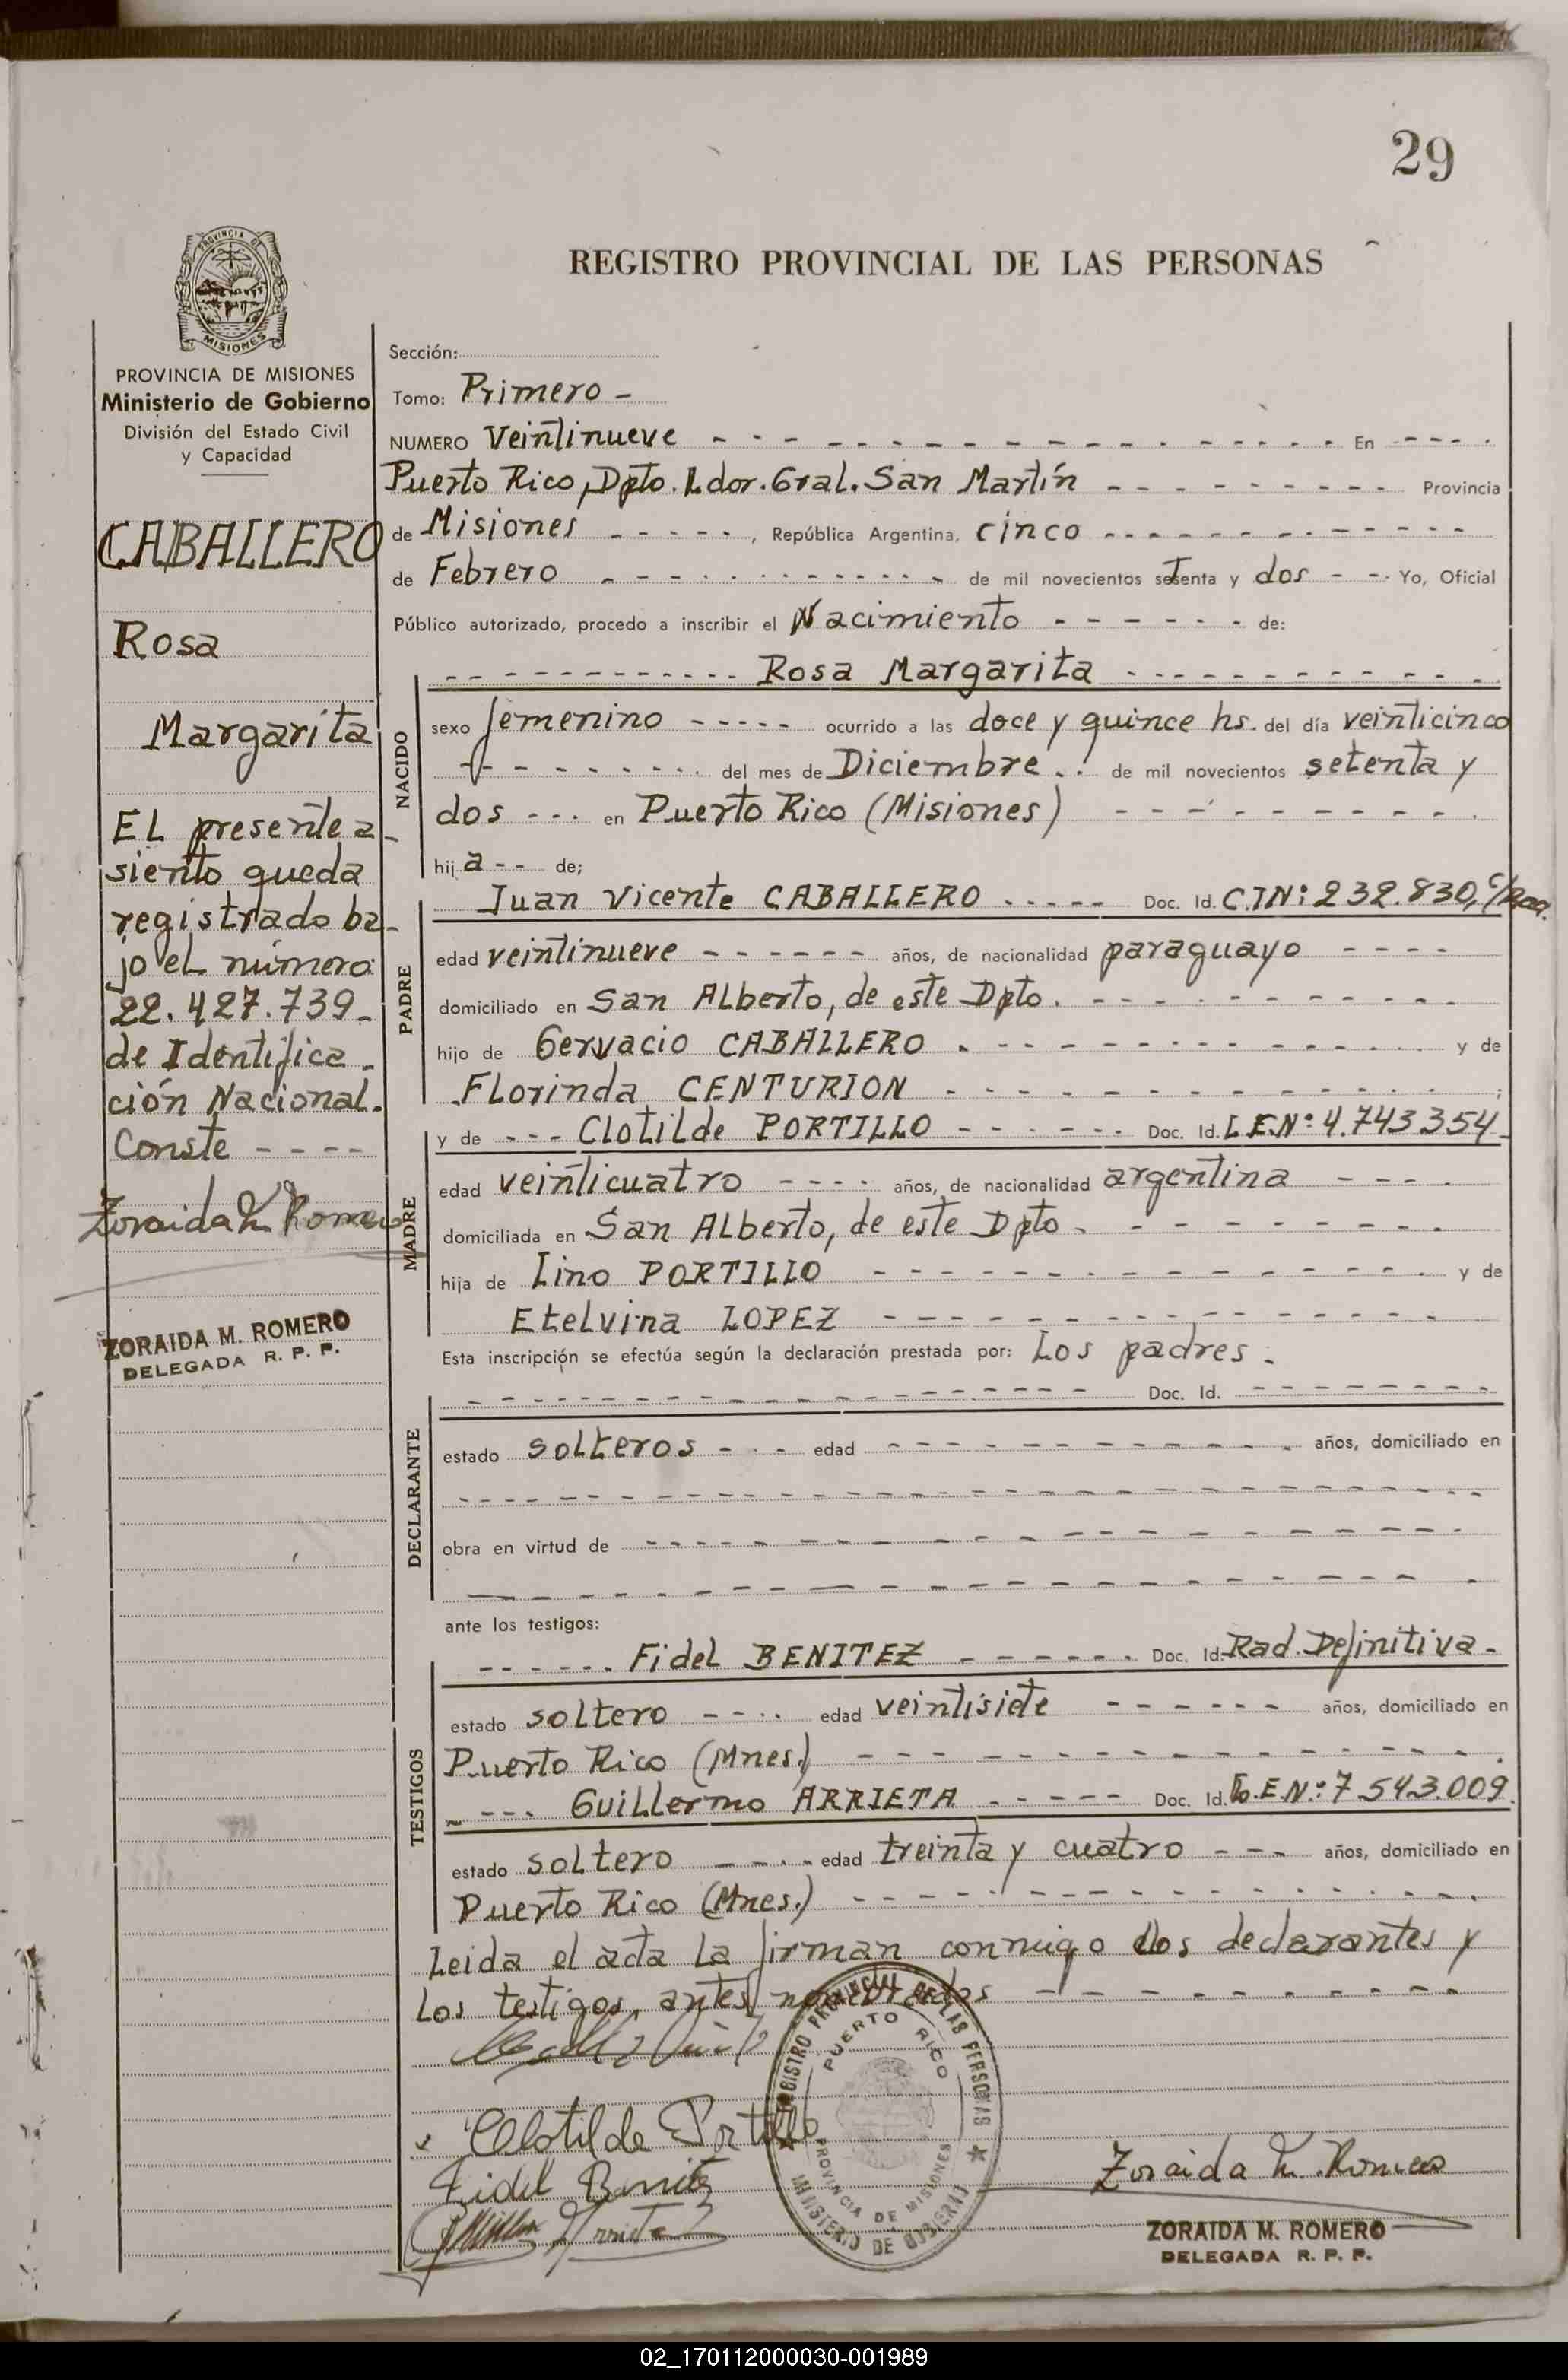 29
REGISTRO PROVINCIAL DE LAS PERSONAS
PROVINCIA DE
MISIONES
PROVINCIA DE MISIONES
Ministerio de Gobierno
División del Estado Civil
y Capacidad
CABALLERO
Rosa
Margarita
EL presente a-
siento queda
registrado ba-
jo el número
22.427.739-
de Identifica-
ción Nacional.
Conste ----
Zoraida M. Romero
ZORAIDA M. ROMERO
DELEGADA R. P. P.
Sección:
Tomo: Primero -
NUMERO Veintinueve - - - En ----
Puerto Rico, Dpto. Ldor. Gral. San Martín - - - Provincia
de Misiones - - - - -, República Argentina, cinco - - -
de Febrero - - - de mil novecientos setenta y dos - - Yo, Oficial
Público autorizado, procedo a inscribir el Nacimiento - - - de:
- - - Rosa Margarita - - -
NACIDO
sexo femenino - - - - - ocurrido a las doce y quince hs. del día veinticinco
- - - del mes de Diciembre . . de mil novecientos setenta y
dos - - - en Puerto Rico (Misiones) - - -
hija - - de;
PADRE
Juan Vicente CABALLERO - - - - - Doc. Id. C.I.Nº: 232.830,
edad veintinueve - - - años, de nacionalidad paraguayo - - - -
domiciliado en San ALberto, de este Dpto. - - -
hijo de Gervacio CABALLERO - - - y de
Florinda CENTURION - - - ;
MADRE
y de - - - Clotilde PORTILLO - - - Doc. Id. L.E.Nº: 4.743.354
edad veinticuatro - - - - años, de nacionalidad argentina - - -
domiciliada en San ALberto, de este Dpto. - - -
hija de Lino PORTILLO - - - y de
Etelvina LOPEZ - - -
Esta inscripción se efectúa según la declaración prestada por: Los padres.
DECLARANTE
- - - Doc. Id. - - -
estado solteros - - - edad - - - años, domiciliado en
- - -
obra en virtud de - - -
- - -
ante los testigos:
TESTIGOS
- - - Fidel BENITEZ - - - Doc. Id. Rad. Definitiva -
estado soltero - - - - edad veintisiete - - - años, domiciliado en
Puerto Rico (Mnes.) - - -
- - - Guillermo ARRIETA - - - Doc. Id. E.Nº: 7.543.009.
estado soltero - - - - edad treinta y cuatro - - - años, domiciliado en
Puerto Rico (Mnes.) - - -
Leida el acta la firman conmigo los declarantes y
Los testigos, antes nombrados - - -
Clotilde Portillo
Fidel Benitez
Arrieta
REGISTRO PROVINCIAL DE LAS PERSONAS
PUERTO RICO
PROVINCIA DE MISIONES
MINISTERIO DE GOBIERNO
Zoraida M. Romero
ZORAIDA M. ROMERO
DELEGADA R. P. P.
02_170112000030-001989